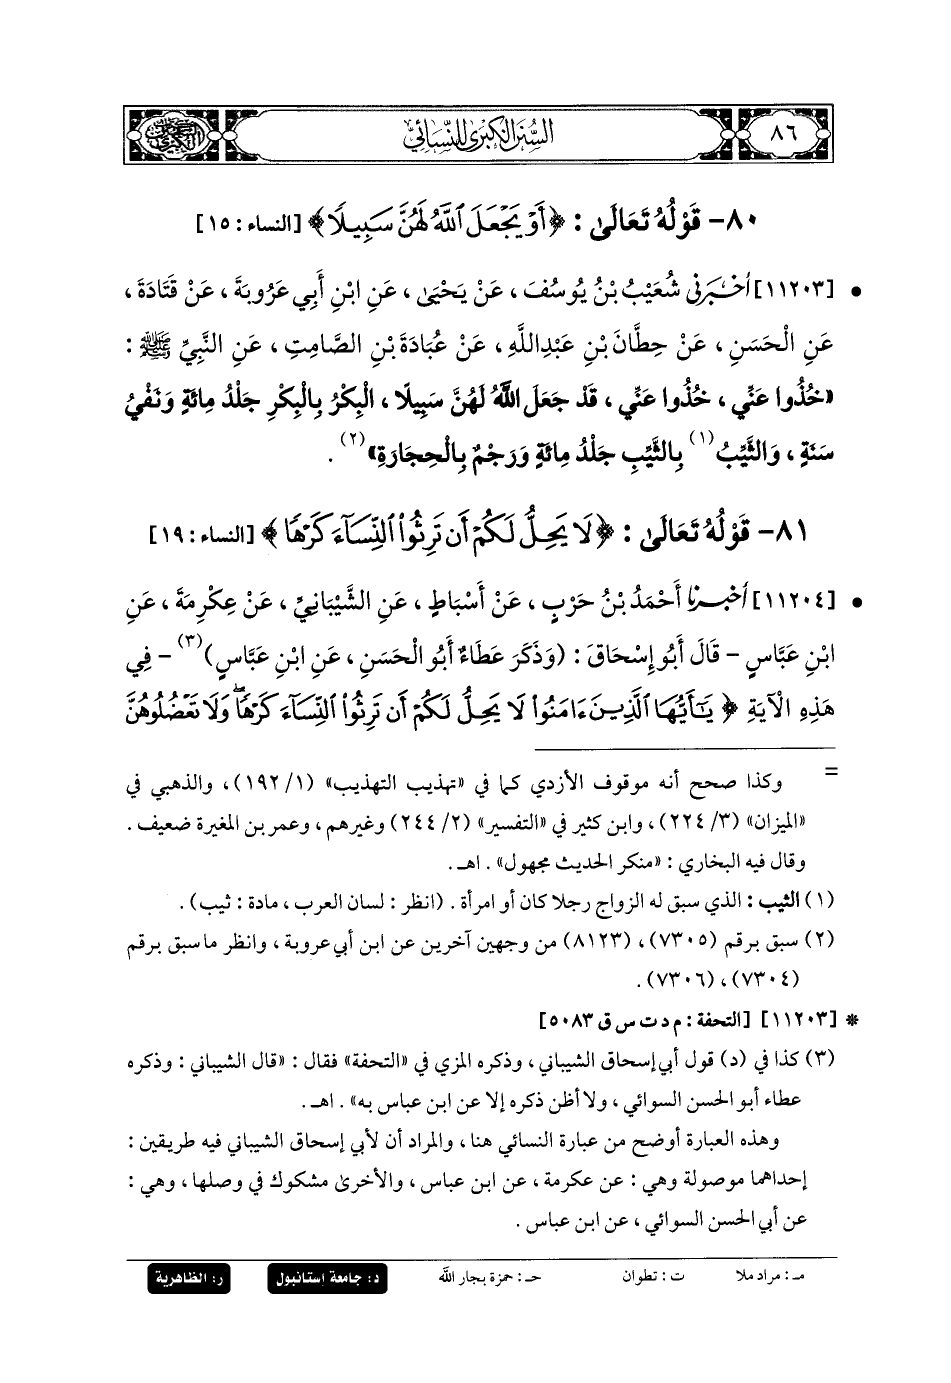 ٨٦
السُّنَنُ الْكِبْرَى لِلنَّسَائِيِّ
٨٠- قَوْلُهُ تَعَالَىٰ : ﴿أَوْ يَجْعَلَ ٱللَّهُ لَهُنَّ سَبِيلًا﴾ [النساء : ١٥]
• [١١٢٠٣] أَخْبَرَنِي شُعَيْبُ بْنُ يُوسُفَ ، عَنْ يَحْيَىٰ ، عَنِ ابْنِ أَبِي عَرُوبَةَ ، عَنْ قَتَادَةَ ،
عَنِ الْحَسَنِ ، عَنْ حِطَّانَ بْنِ عَبْدِاللَّهِ ، عَنْ عُبَادَةَ بْنِ الصَّامِتِ ، عَنِ النَّبِيِّ ﷺ :
«خُذُوا عَنِّي ، خُذُوا عَنِّي ، قَدْ جَعَلَ اللَّهُ لَهُنَّ سَبِيلًا ، الْبِكْرُ بِالْبِكْرِ جَلْدُ مِائَةٍ وَنَفْيُ
سَنَةٍ ، وَالثَّيِّبُ (١) بِالثَّيِّبِ جَلْدُ مِائَةٍ وَرَجْمٌ بِالْحِجَارَةِ» (٢) .
٨١- قَوْلُهُ تَعَالَىٰ : ﴿لَا يَحِلُّ لَكُمْ أَن تَرِثُوا۟ ٱلنِّسَآءَ كَرْهًا﴾ [النساء : ١٩]
• [١١٢٠٤] أَخْبَرَنَا أَحْمَدُ بْنُ حَرْبٍ ، عَنْ أَسْبَاطٍ ، عَنِ الشَّيْبَانِيِّ ، عَنْ عِكْرِمَةَ ، عَنِ
ابْنِ عَبَّاسٍ - قَالَ أَبُو إِسْحَاقَ : (وَذَكَرَ عَطَاءٌ أَبُو الْحَسَنِ ، عَنِ ابْنِ عَبَّاسٍ) (٣) - فِي
هَذِهِ الْآيَةِ ﴿يَـٰٓأَيُّهَا ٱلَّذِينَ ءَامَنُوا۟ لَا يَحِلُّ لَكُمْ أَن تَرِثُوا۟ ٱلنِّسَآءَ كَرْهًا ۖ وَلَا تَعْضُلُوهُنَّ
= وكذا صحح أنه موقوف الأزدي كما في «تهذيب التهذيب» (١/ ١٩٢) ، والذهبي في
«الميزان» (٣/ ٢٢٤) ، وابن كثير في «التفسير» (٢/ ٢٤٤) وغيرهم ، وعمر بن المغيرة ضعيف .
وقال فيه البخاري : «منكر الحديث مجهول» . اهـ .
(١) الثيب : الذي سبق له الزواج رجلا كان أو امرأة . (انظر : لسان العرب ، مادة : ثيب) .
(٢) سبق برقم (٧٣٠٥) ، (٨١٢٣) من وجهين آخرين عن ابن أبي عروبة ، وانظر ما سبق برقم
(٧٣٠٤) ، (٧٣٠٦) .
* [١١٢٠٣] [التحفة : م د ت س ق ٥٠٨٣]
(٣) كذا في (د) قول أبي إسحاق الشيباني ، وذكره المزي في «التحفة» فقال : «قال الشيباني : وذكره
عطاء أبو الحسن السوائي ، ولا أظن ذكره إلا عن ابن عباس به» . اهـ .
وهذه العبارة أوضح من عبارة النسائي هنا ، والمراد أن لأبي إسحاق الشيباني فيه طريقين :
إحداهما موصولة وهي : عن عكرمة ، عن ابن عباس ، والأخرى مشكوك في وصلها ، وهي :
عن أبي الحسن السوائي ، عن ابن عباس .
مـ : مراد ملا ت : تطوان حـ : حمزة بجار الله د : جامعة إستانبول ر : الظاهرية